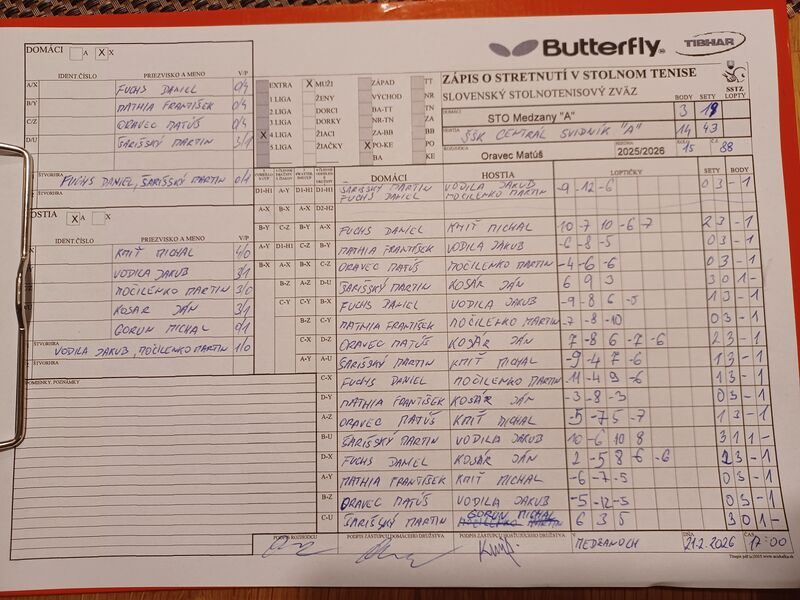 Butterfly TIBHAR
DOMÁCI A X X
IDENT.ČÍSLO PRIEZVISKO A MENO V/P
A/X FUCHS DANIEL 0/4
B/Y MATHIA FRANTIŠEK 0/4
C/Z ORAVEC MATÚŠ 0/4
D/U ŠARIŠSKÝ MARTIN 3/1
ŠTVORHRA
FUCHS DANIEL, ŠARIŠSKÝ MARTIN 0/1
ŠTVORHRA
HOSTIA X A X
IDENT.ČÍSLO PRIEZVISKO A MENO V/P
KMIŤ MICHAL 4/0
VODILA JAKUB 3/1
MOČILENKO MARTIN 3/0
KOSÁR JÁN 3/1
GORUN MICHAL 0/1
ŠTVORHRA
VODILA JAKUB, MOČILENKO MARTIN 1/0
ŠTVORHRA
POMIENKY, POZNÁMKY
EXTRA X MUŽI ZÁPAD TT
1 LIGA ŽENY VÝCHOD NR
2 LIGA DORCI BA-TT TN
3 LIGA DORKY NR-TN ZA
X 4 LIGA ŽIACI ZA-BB BB
5 LIGA ŽIAČKY X PO-KE PO
BA KE
ZÁPIS O STRETNUTÍ V STOLNOM TENISE
SLOVENSKÝ STOLNOTENISOVÝ ZVÄZ SSTZ
BODY SETY LOPTY
DOMÁCI STO Medzany "A" 3 19
HOSTIA ŠSK CENTRÁL SVIDNÍK "A" 14 43
ROZHODCA Oravec Matúš SEZÓNA 2025/2026 KOLO 15 Č 88
DOMÁCI HOSTIA LOPTIČKY SETY BODY
D1-H1 A-Y D1-H1 D1-H1 ŠARIŠSKÝ MARTIN VODILA JAKUB -9 -12 -6 0 3 - 1
FUCHS DANIEL MOČILENKO MARTIN
A-X B-X A-X D2-H2
B-Y C-Z B-Y A-X FUCHS DANIEL KMIŤ MICHAL 10 -7 10 -6 -7 2 3 - 1
A-Y D1-H1 C-Z B-Y MATHIA FRANTIŠEK VODILA JAKUB -6 -8 -5 0 3 - 1
B-X A-X B-X C-Z ORAVEC MATÚŠ MOČILENKO MARTIN -4 -6 -6 0 3 - 1
B-Z A-Z D-U ŠARIŠSKÝ MARTIN KOSÁR JÁN 6 9 3 3 0 1 -
C-Y C-Y B-X FUCHS DANIEL VODILA JAKUB -9 -8 6 -5 1 3 - 1
B-Z C-Y MATHIA FRANTIŠEK MOČILENKO MARTIN -7 -8 -10 0 3 - 1
C-X D-Z ORAVEC MATÚŠ KOSÁR JÁN 7 -8 6 -7 -6 2 3 - 1
A-Y A-U ŠARIŠSKÝ MARTIN KMIŤ MICHAL -9 -4 7 -6 1 3 - 1
C-X FUCHS DANIEL MOČILENKO MARTIN 11 -4 -9 -6 1 3 - 1
D-Y MATHIA FRANTIŠEK KOSÁR JÁN -3 -8 -3 0 3 - 1
A-Z ORAVEC MATÚŠ KMIŤ MICHAL -5 -7 5 -7 1 3 - 1
B-U ŠARIŠSKÝ MARTIN VODILA JAKUB 10 -6 10 8 3 1 1 -
D-X FUCHS DANIEL KOSÁR JÁN 2 -5 8 -6 -6 2 3 - 1
A-Y MATHIA FRANTIŠEK KMIŤ MICHAL -6 -7 -5 0 3 - 1
B-Z ORAVEC MATÚŠ VODILA JAKUB -5 -12 -5 0 3 - 1
C-U ŠARIŠSKÝ MARTIN GORUN MICHAL 6 3 5 3 0 1 -
PODPIS ROZHODCU PODPIS ZÁSTUPCU DOMÁCEHO DRUŽSTVA PODPIS ZÁSTUPCU HOSŤUJÚCEHO DRUŽSTVA V MEDZANOCH DŇA 21.2.2026 ČAS 17:00